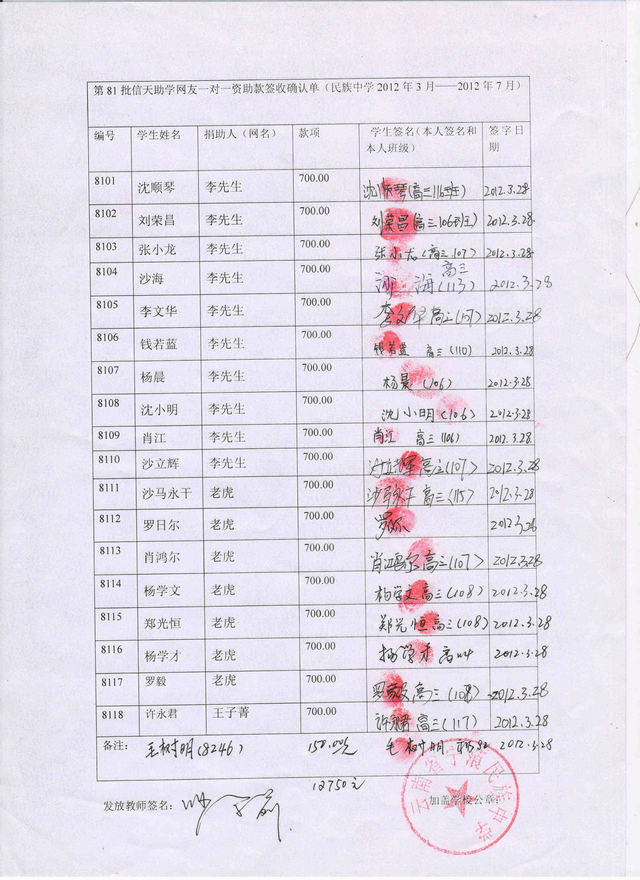 第81批信天助学网友一对一资助款签收确认单（民族中学2012年3月——2012年7月）
编号 学生姓名 捐助人（网名） 款项 学生签名（本人签名和本人班级） 签字日期
8101 沈顺琴 李先生 700.00 沈顺琴(高三116班) 2012.3.28
8102 刘荣昌 李先生 700.00 刘荣昌(高三106班) 2012.3.28
8103 张小龙 李先生 700.00 张小龙(高三.107) 2012.3.28
8104 沙海 李先生 700.00 沙海 高三(113) 2012.3.28
8105 李文华 李先生 700.00 李文华 高三(107) 2012.3.28
8106 钱若蓝 李先生 700.00 钱若蓝 高三(110) 2012.3.28
8107 杨晨 李先生 700.00 杨晨(106) 2012.3.28
8108 沈小明 李先生 700.00 沈小明(106) 2012.3.28
8109 肖江 李先生 700.00 肖江 高三(106) 2012.3.28
8110 沙立辉 李先生 700.00 高三(107) 2012.3.28
8111 沙马永干 老虎 700.00 沙马永干 高三(115) 2012.3.28
8112 罗日尔 老虎 700.00 2012.3.28
8113 肖鸿尔 老虎 700.00 肖鸿尔 高三(107) 2012.3.28
8114 杨学文 老虎 700.00 杨学文 高三(108) 2012.3.28
8115 郑光恒 老虎 700.00 郑光恒 高三(108) 2012.3.28
8116 杨学才 老虎 700.00 杨学才 高114 2012.3.28
8117 罗毅 老虎 700.00 罗毅 高三(108) 2012.3.28
8118 许永君 王子菁 700.00 许永君 高三(117) 2012.3.28
备注： 毛树明(8246) 150.00元 毛树明 2012.3.28
12750元
发放教师签名： 加盖学校公章：
云南省宁蒗民族中学